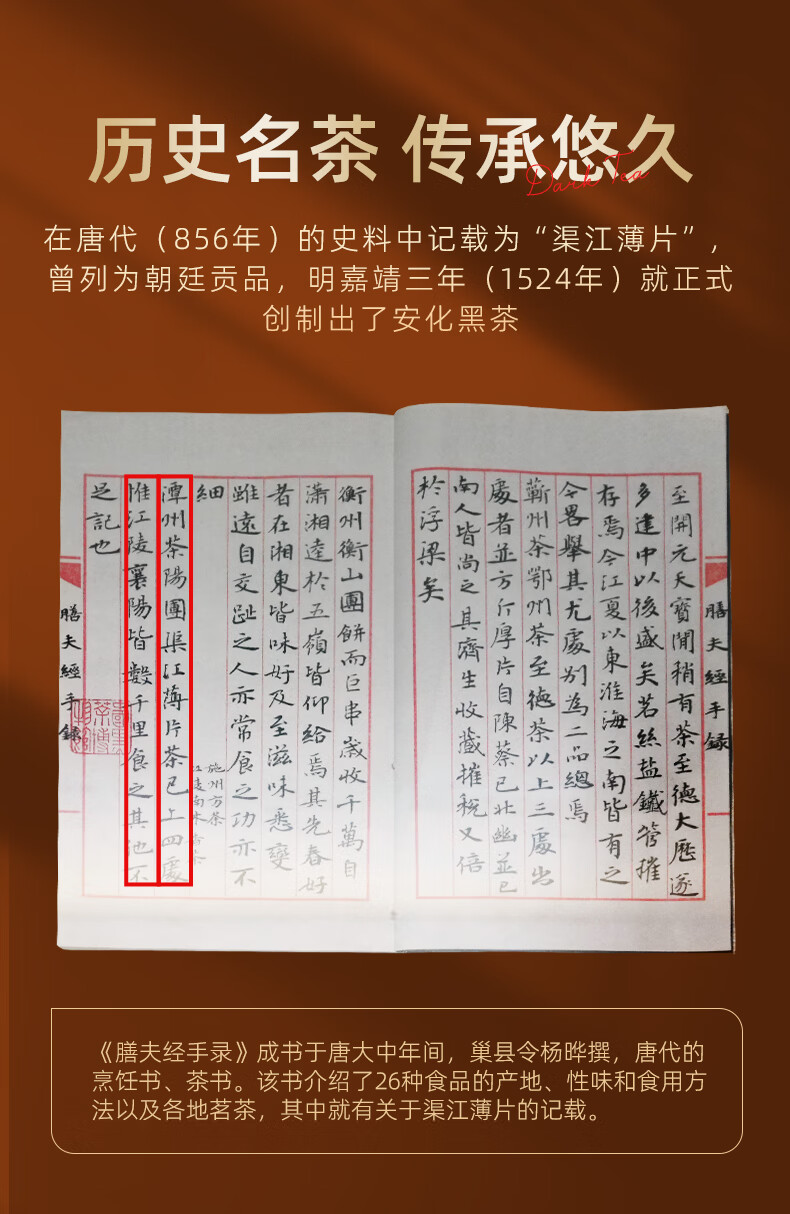 历史名茶 传承悠久
Dark Tea
在唐代（856年）的史料中记载为“渠江薄片”，
曾列为朝廷贡品，明嘉靖三年（1524年）就正式
创制出了安化黑茶
膳夫經手録
至開元天寳閒稍有茶至德大歷遂
多建中以後盛矣茗絲盐鐵管搉
存焉今江夏以東淮海之南皆有之
今畧舉其尤處別為二品總焉
蘄州茶鄂州茶至德茶以上三處出
處者並方斤厚片自陳蔡已北幽並已
南人皆尚之其濟生收藏搉稅又倍
於浮梁矣
衡州衡山團餅而巨串歲收千萬自
瀟湘逵於五嶺皆仰給焉其先春好
者在湘東皆味好及至滋味悉變
雖遠自交趾之人亦常食之功亦不
細
施州方茶
江陵南木香茶
潭州茶陽團渠江薄片茶已上四處
惟江陵襄陽皆數千里食之其他不
足記也
膳夫經手録
《膳夫经手录》成书于唐大中年间，巢县令杨晔撰，唐代的
烹饪书、茶书。该书介绍了26种食品的产地、性味和食用方
法以及各地茗茶，其中就有关于渠江薄片的记载。